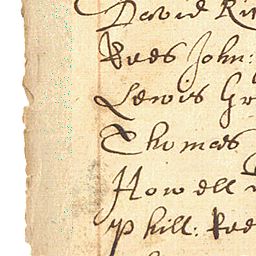 David
Rees John:
Lewis Gr
Thomas
Howell
Phill: Ree